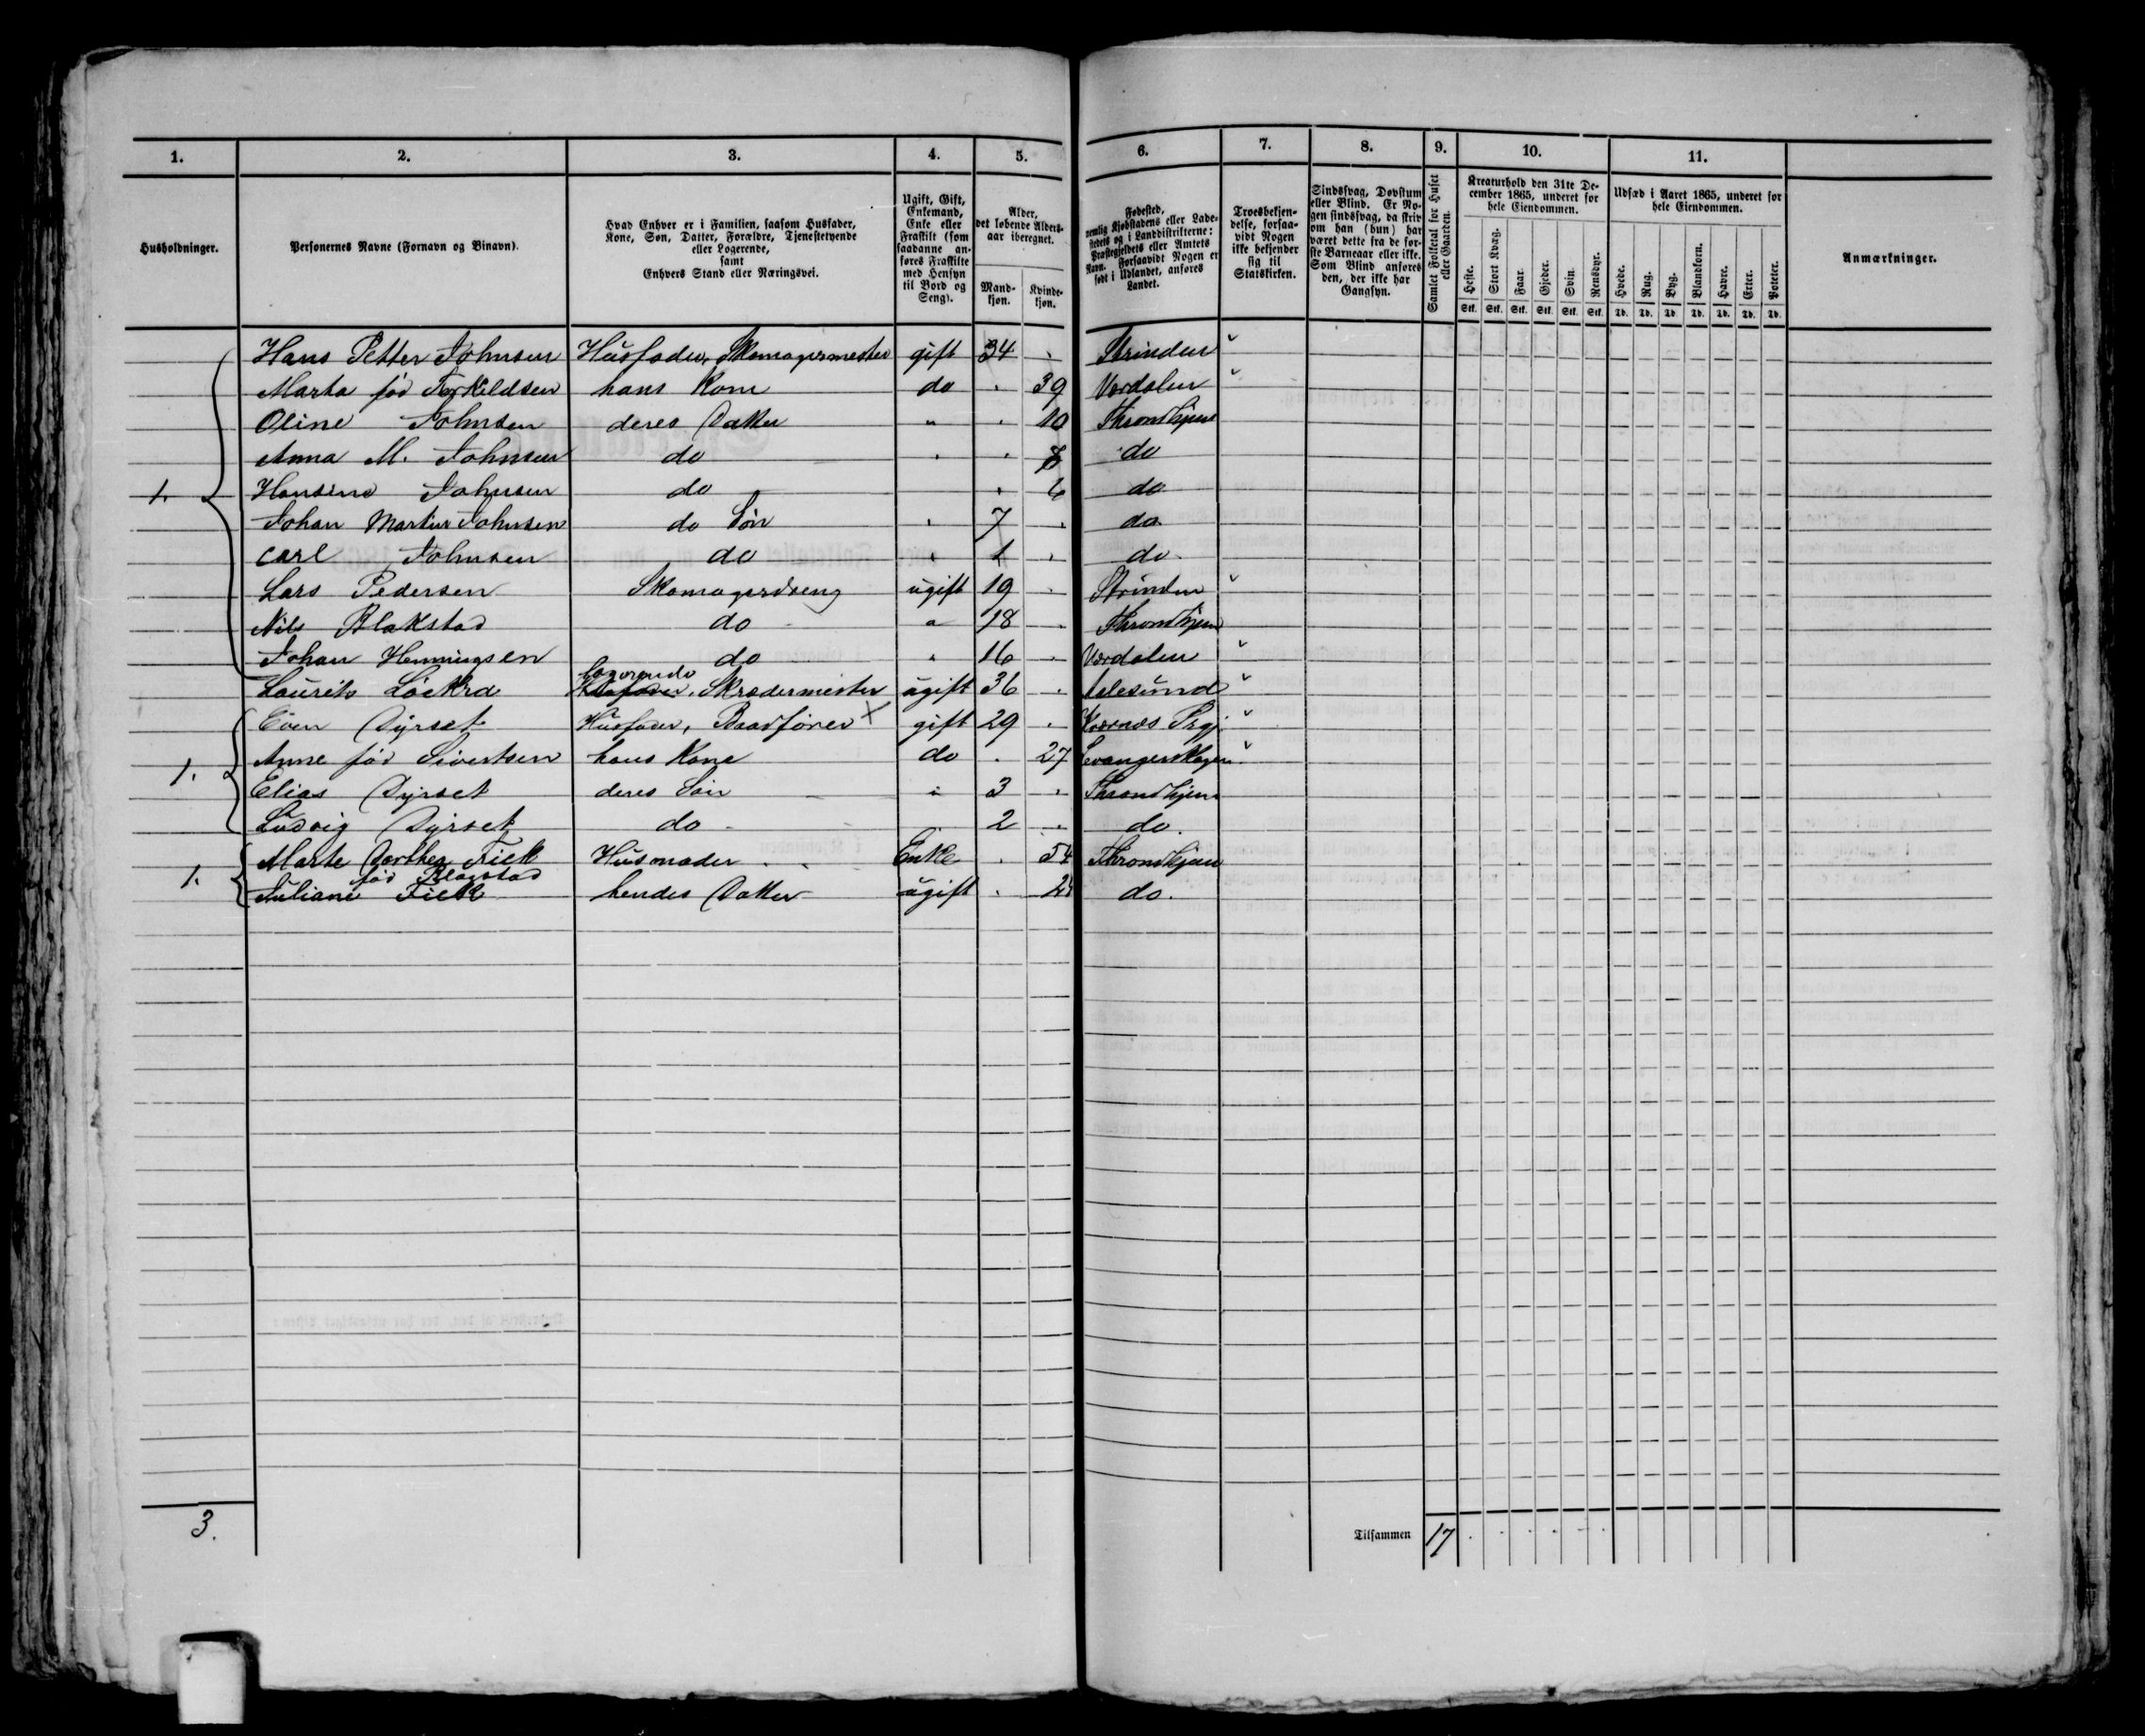 1. 2. 3. 4. 5. 6. 7. 8. 9. 10. 11.
Husholdninger.
Personernes Navne (Fornavn og Binavn).
Hvad Enhver er i Familien, saasom Husfader,
Kone, Søn, Datter, Forældre, Tjenestetyende
eller Logerende,
samt
Enhvers Stand eller Næringsvei.
Ugift, Gift,
Enkemand,
Enke eller
Fraskilt (som
saadanne an-
føres Fraskilte
med Hensyn
til Bord og
Seng).
Alder,
det løbende Alders-
aar iberegnet.
Mand-
kjøn.
Kvinde-
kjøn.
Fødested,
nemlig Kjøbstadens eller Lade-
stedets og i Landdistrikterne:
Præstegjeldets eller Amtets
Navn. Forsaavidt Nogen er
født i Udlandet, anføres
Landet.
Troesbekjen-
delse, forsaa-
vidt Nogen
ikke bekjender
sig til
Statskirken.
Sindssvag, Døvstum
eller Blind. Er No-
gen sindssvag, da skriv
om han (hun) har
været dette fra de før-
ste Barneaar eller ikke.
Som Blind anføres
den, der ikke har
Gangsyn.
Samlet Folketal for Huset
eller Gaarden.
Kreaturhold den 31te De-
cember 1865, underet for
hele Eiendommen.
Heste. Stort Kvæg. Faar. Gjeder. Svin. Rensdyr.
Stk. Stk. Stk. Stk. Stk. Stk.
Udsæd i Aaret 1865, underet for
hele Eiendommen.
Hvede. Rug. Byg. Blandkorn. Havre. Erter. Poteter.
Td. Td. Td. Td. Td. Td. Td.
Anmærkninger.
Hans Petter Johnsen Husfader, Skomagermester gift 34 Strinden
Marta fød Torkildsen hans Kone do 39 Værdalen
Oline Johnsen deres Datter 10 Throndhjem
Anna M. Johnsen do do
1. Hansine Johnsen do 6 do
Johan Martin Johnsen do Søn 7 do
Carl Johnsen do 1 do
Lars Pedersen Skomagerdreng ugift 19 Strinden
Nils Blakstad do 18 Throndhjem
Johan Henningsen do 16 Værdalen
Logerende
Laurits Husfader, Skrædermester ugift 36 Aalesund
Even Dyrset Husfader, Baadfører gift 29 Kvernæs Prgj
1. Anne fød Sivertsen hans Kone do 27
Elias Dyrset deres Søn 3 Throndhjem
Ludvig Dyrset do 2 do
Marte Dorthea Fick Husmoder Enke 54 Throndhjem
fød Blagstad
1. Juliane Fick hendes Datter ugift do.
3.
Tilsammen 17